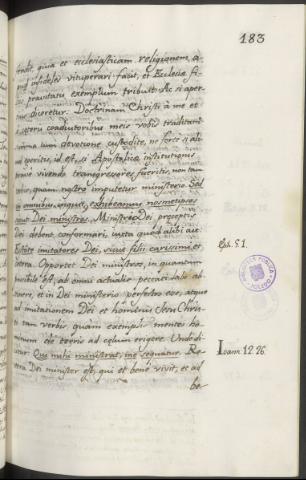 183
tradit givia et ecclesiasticam religionem, a-
pud infideles vituperari facit, et Ecclesiæ fi-
pravitatis exemplum tribuit. Ac si aper-
diceretur. Doctrinam Christi à me et
cæteris coadiutoribus meis vobis traditam
summa cum devotione custodite, ne forte si ali-
ter egeritis, id est, si Apostolicæ institutionis
bene vivendo transgressores fueritis, non tam
vobis, quam nostro imputetur ministerio. Sed
in omnibus, inquit, exhibeamus nosmetipsos
sicut Dei ministros. Ministri Dei præceptis
Dei debent conformari, iuxta quod alibi ait.
Estote imitatores Dei, sicut filii carissimi, et
cetera. Oportet Dei ministros, in quantum
possibile est, ab omni actualis peccati labe ab-
luere, et in Dei ministerio perfectos esse, atque
ad imitationem Dei et hominis Jesu Chris-
ti tam verbis quam exemplis mentes ho-
minum de terris ad cælum erigere. Unde di-
citur. Qui mihi ministrat, me sequatur. Re-
Dei minister est, qui et bene vivit, et ad
be-
Eph. 5. 1.
Ioann. 12. 26.